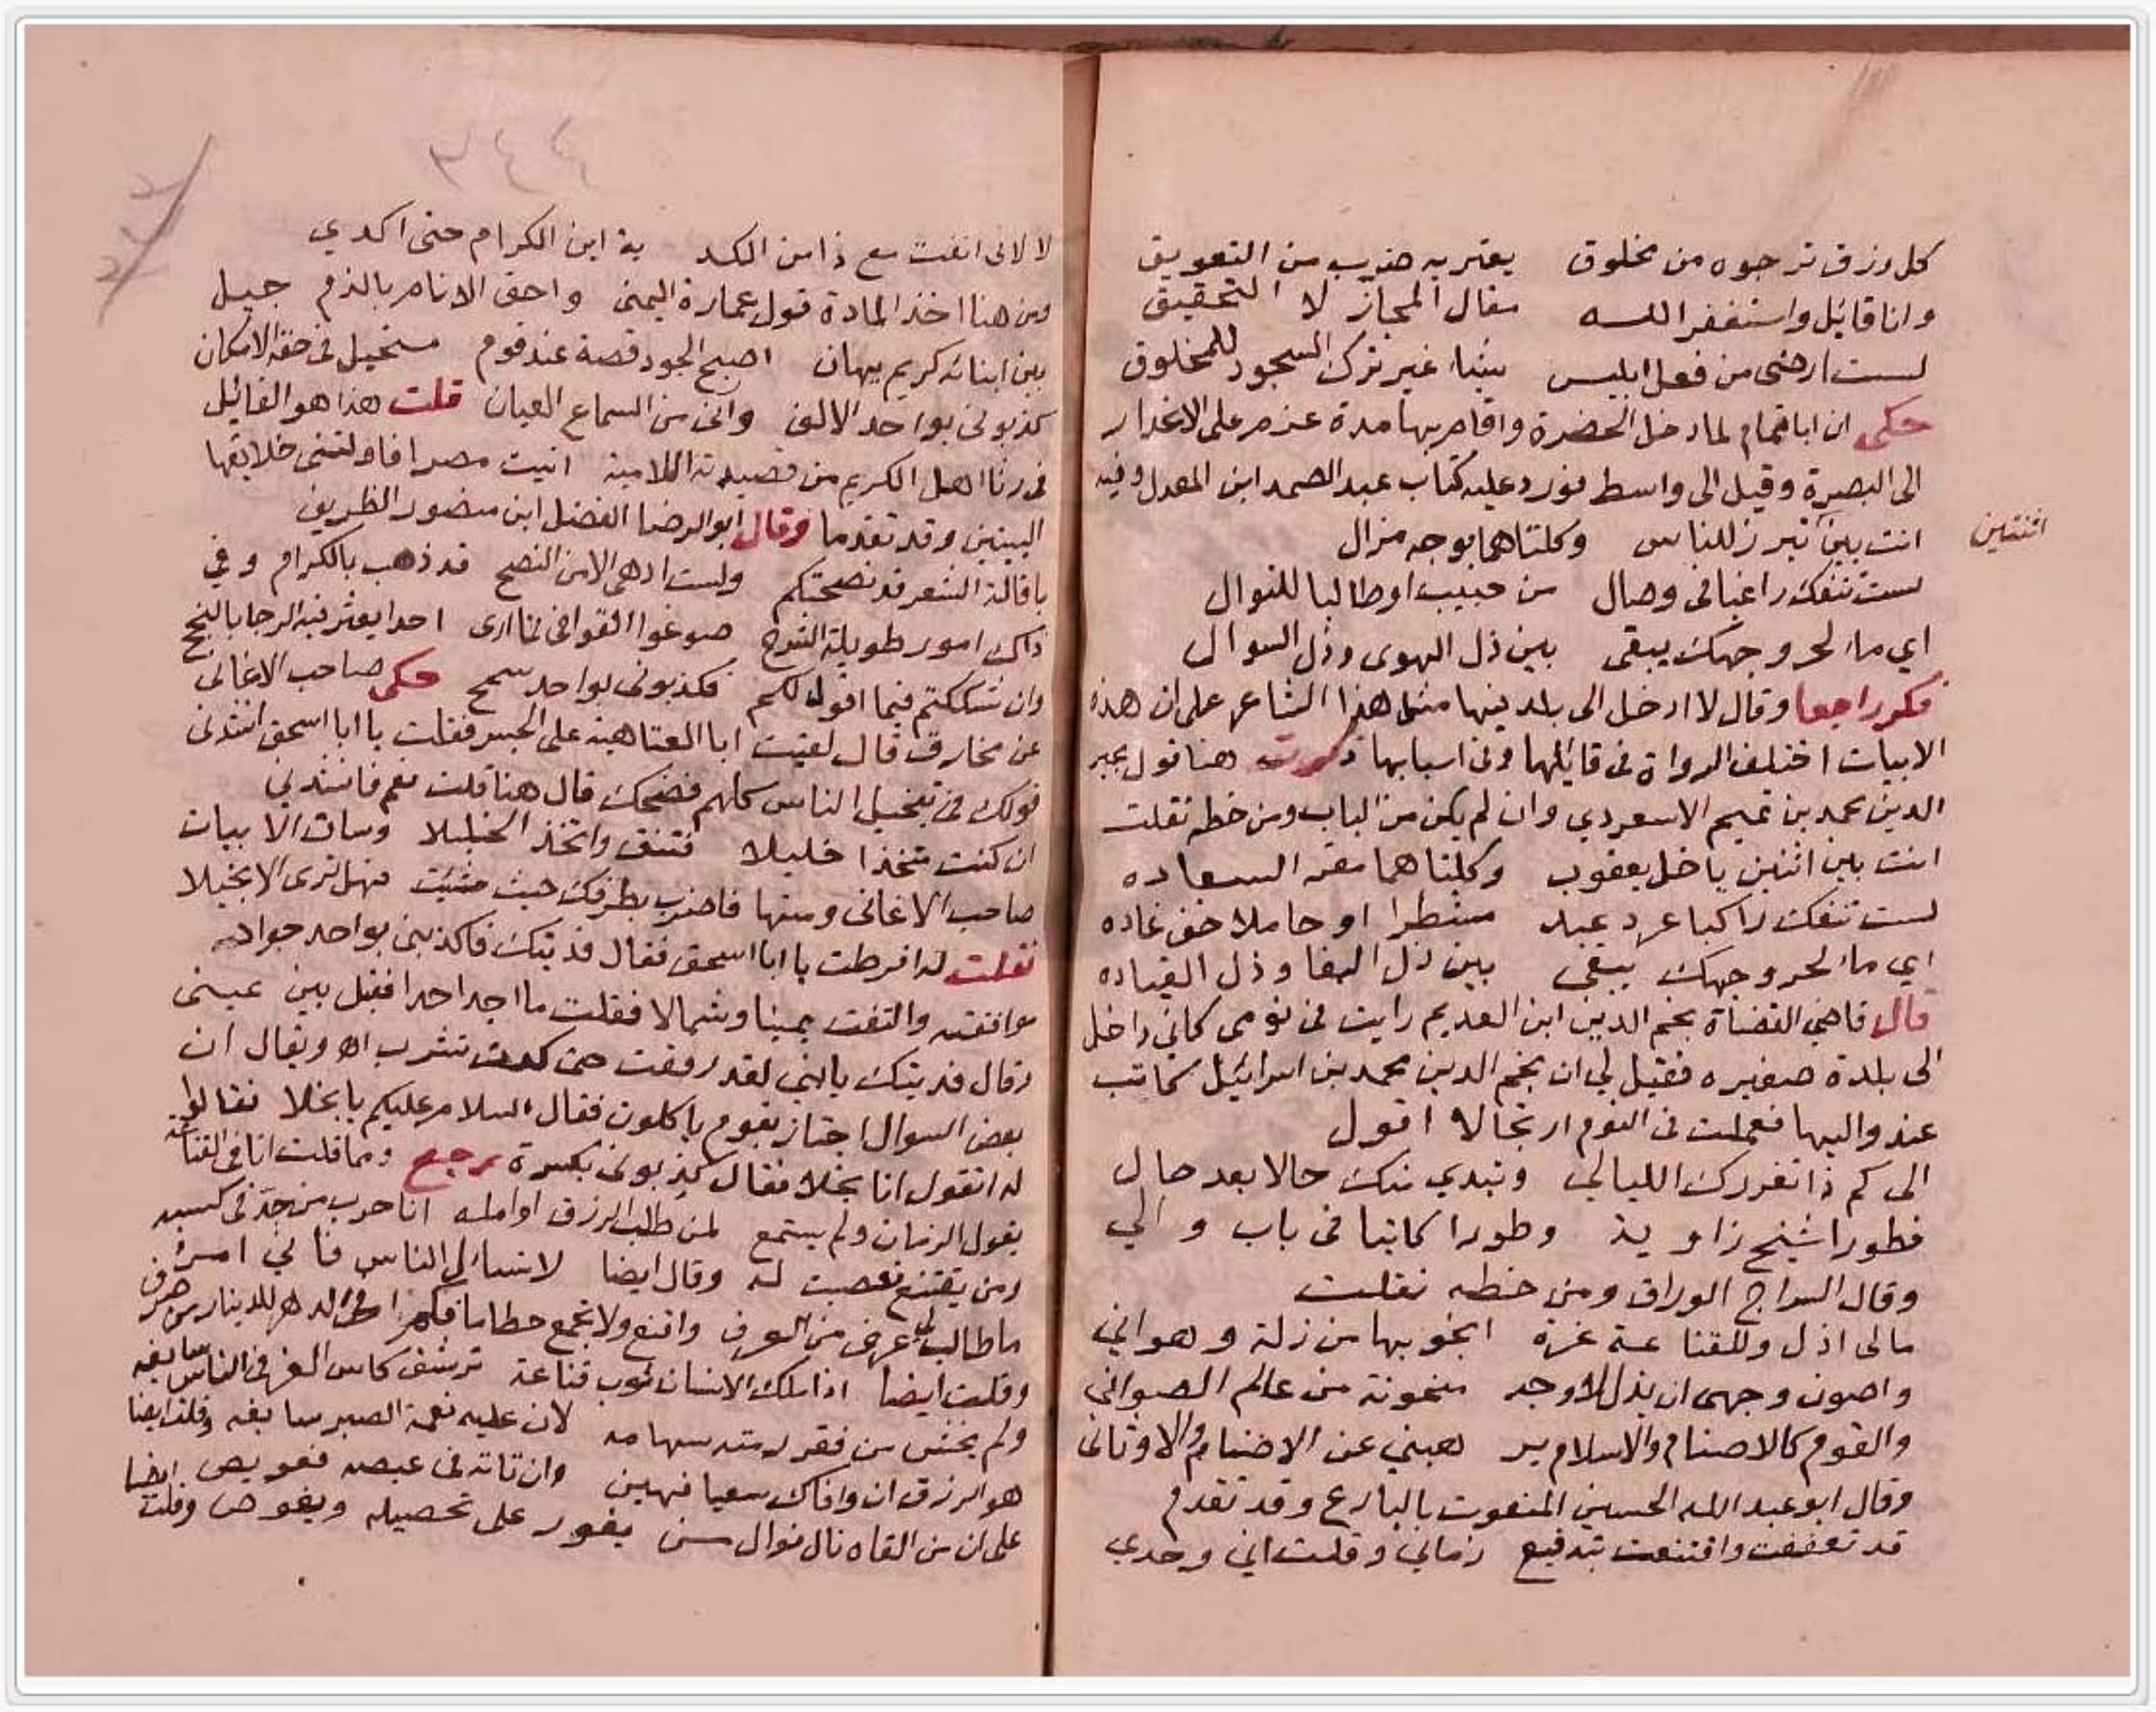 كل رزق ترجوه من مخلوق يعتريه ضرب من التعويق
وانا قايل واستغفر الله مقال المجاز لا التحقيق
لست ارضى من فعل ابليس شيئا غير ترك السجود للمخلوق
حكى ان ابا تمام لما دخل الحضرة واقام بها مدة عزم على الانحدار
الى البصرة وقيل الى واسط فورد عليه كتاب عبد الصمد ابن المعدل وفيه
انت بين تبرز للناس وكلتاهما بوجه مزال
اثنتين
لست تنفك راغبا فى وصال من حبيب او طالبا للنوال
اي ما لحر وجهك يبقى بين ذل الهوى وذل السوال
فكر راجعا وقال لا ادخل الى بلد فيها مثل هذا الشاعر على ان هذه
الابيات اختلف الرواة فى قائلها وفى اسبابها ذكرت هنا قول مجير
الدين محمد بن تميم الاسعردي وان لم يكن من الباب ومن خطه نقلت
انت بين اثنين يا خل يعقوب وكلتاهما مقر السعاده
لست تنفك راكبا عرد عبد مسطرا او حاملا خف غاده
اي ما لحر وجهك يبقى بين ذل البغا وذل القياده
قال قاضي القضاة نجم الدين ابن العديم رايت فى نومى كاني داخل
الى بلدة صغيره فقيل لي ان نجم الدين محمد بن اسرائيل كاتب
عند واليها فعملت فى النوم ارتجالا اقول
الى كم ذا تغررك الليالي وتبدي منك حالا بعد حال
فطورا شيخ زاوية وطورا كاتبا فى باب والي
وقال السراج الوراق ومن خطه نقلت
مالى اذل وللقناعة عزة انجو بها من زلة وهواني
واصون وجهى ان يذل لاوجد منحوتة من عالم الصوانى
والقوم كالاصنام والاسلام يرهبني عن الاصنام والاوثانى
وقال ابو عبد الله الحسين المنعوت بالبارع وقد تقدم
قد تعففت واقتنعت بتدقيع زمانى وقلت اني وحدي
٣٤٤
لا لانى انفت مع ذا من الكدية اين الكرام حتى اكدي
ومن هنا اخذ المادة قول عمارة اليمنى واحق الانام بالذم جيل
بين ابنائه كريم يهان اصبح الجود قصة عند قوم مستحيل فى حقه الامكان
كذبونى بواحد الالف وانى من السماع العيان قلت هذا هو القائل
فى رثا اهل الكريم من قصيدته اللامية اتيت مصرا فاولتنى خلايقها
البيتين وقد تقدما وقال ابو الرضا الفضل ابن منصور الظريف
يا قالة الشعر قد نصحتكم ولست ادهى الا من النصح قد ذهب بالكرام وفي
ذاك امور طويلة الشرح صوغوا القوافى فما ارى احدا يعثر فيه الرجا بالنجح
وان شككتم فيما اقول لكم فكذبونى بواحد سمح حكى صاحب الاغانى
عن مخارق قال لقيت ابا العتاهية على الجسر فقلت يا ابا اسحق انشدنى
قولك فى تبخيل الناس كلهم فضحك قال هنا قلت نعم فانشدنى
ان كنت متخذا خليلا فتنق واتخذ الخليلا وساق الابيات
صاحب الاغانى ومنها فاضرب بطرفك حيث شئت فهل ترى الا بخيلا
فقلت له افرطت يا ابا اسحق فقال فديتك فاكذبنى بواحد جواد
موافقته والتفت يمينا وشمالا فقلت ما اجد احدا فقبل بين عينى
وقال فديتك يا بنى لقد رفقت حتى كدت تشرب اه ويقال ان
بعض السوال اجتاز بقوم ياكلون فقال السلام عليكم يا بخلا فقالوا
له اتقول انا بخلا فقال كذبونى بكسرة رجع ومما قلت انا فى القناعة
يقول الزمان ولم يستمع لمن طلب الرزق او امله انا حرب من جد فى كسبه
ومن يقتنع تعصبت له وقال ايضا لا تسال الناس فانى امرؤ
ما طالب عرض من العرف واقنع ولا تجمع حطاما فكم الدهر للدينار من صرف
وقلت ايضا اذا ملك الانسان ثوب قناعة ترشف كاس العز فى الناس سايغه
ولم يخش من فقر سهامه لان عليه نعمة الصبر سابغه وقلت ايضا
هو الرزق ان وافاك سعيا فهين وان تاته فى عيصه فعويص
على ان من القاه نال نوال من يغور على تحصيله ويغوص وقلت ايضا